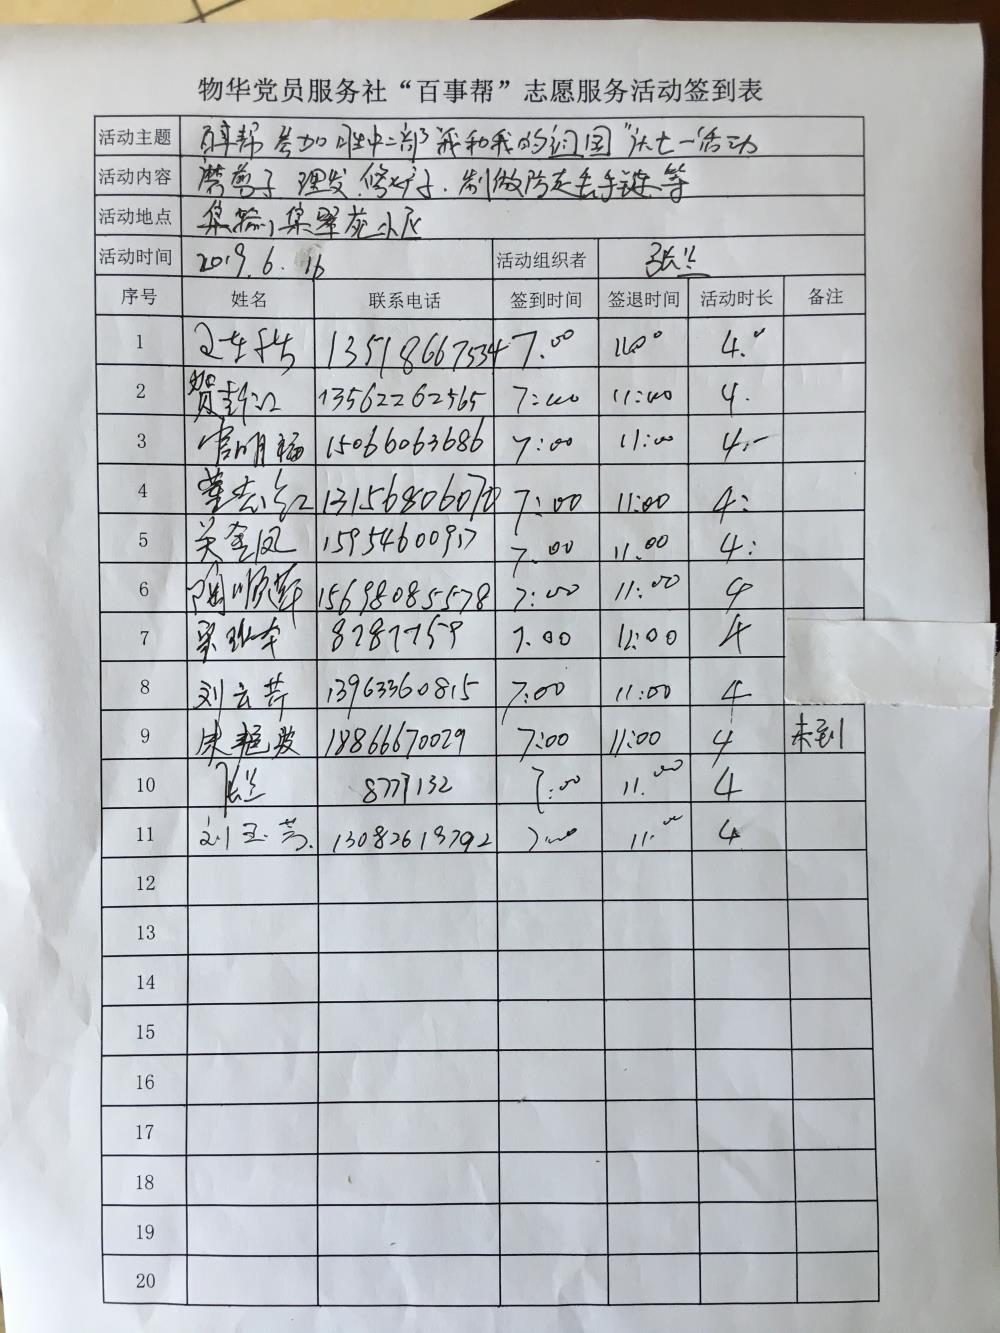 物华党员服务社“百事帮”志愿服务活动签到表
活动主题 百事帮参加胜中二部“我和我的祖国”庆七一活动
活动内容 磨剪子 理发 修 制做防走丢手链等
活动地点 集输集翠苑小区
活动时间 2019.6.16 活动组织者 张兰
序号 姓名 联系电话 签到时间 签退时间 活动时长 备注
1 13518667534 7.00 11.00 4.0
2 13562262565 7:00 11:00 4.
3 官明福 15066063686 7:00 11:00 4.-
4 13156806070 7:00 11:00 4:
5 关金凤 15954600917 7.00 11.00 4:
6 陶顺莲 15698085578 7:00 11:00 4
7 8787759 7.00 11:00 4
8 刘云芹 13963360815 7:00 11:00 4
9 朱艳敏 18866670029 7:00 11:00 4 未到
10 张兰 8779132 7:00 11.00 4
11 刘玉芳 13082613792 7:00 11.00 4
12
13
14
15
16
17
18
19
20